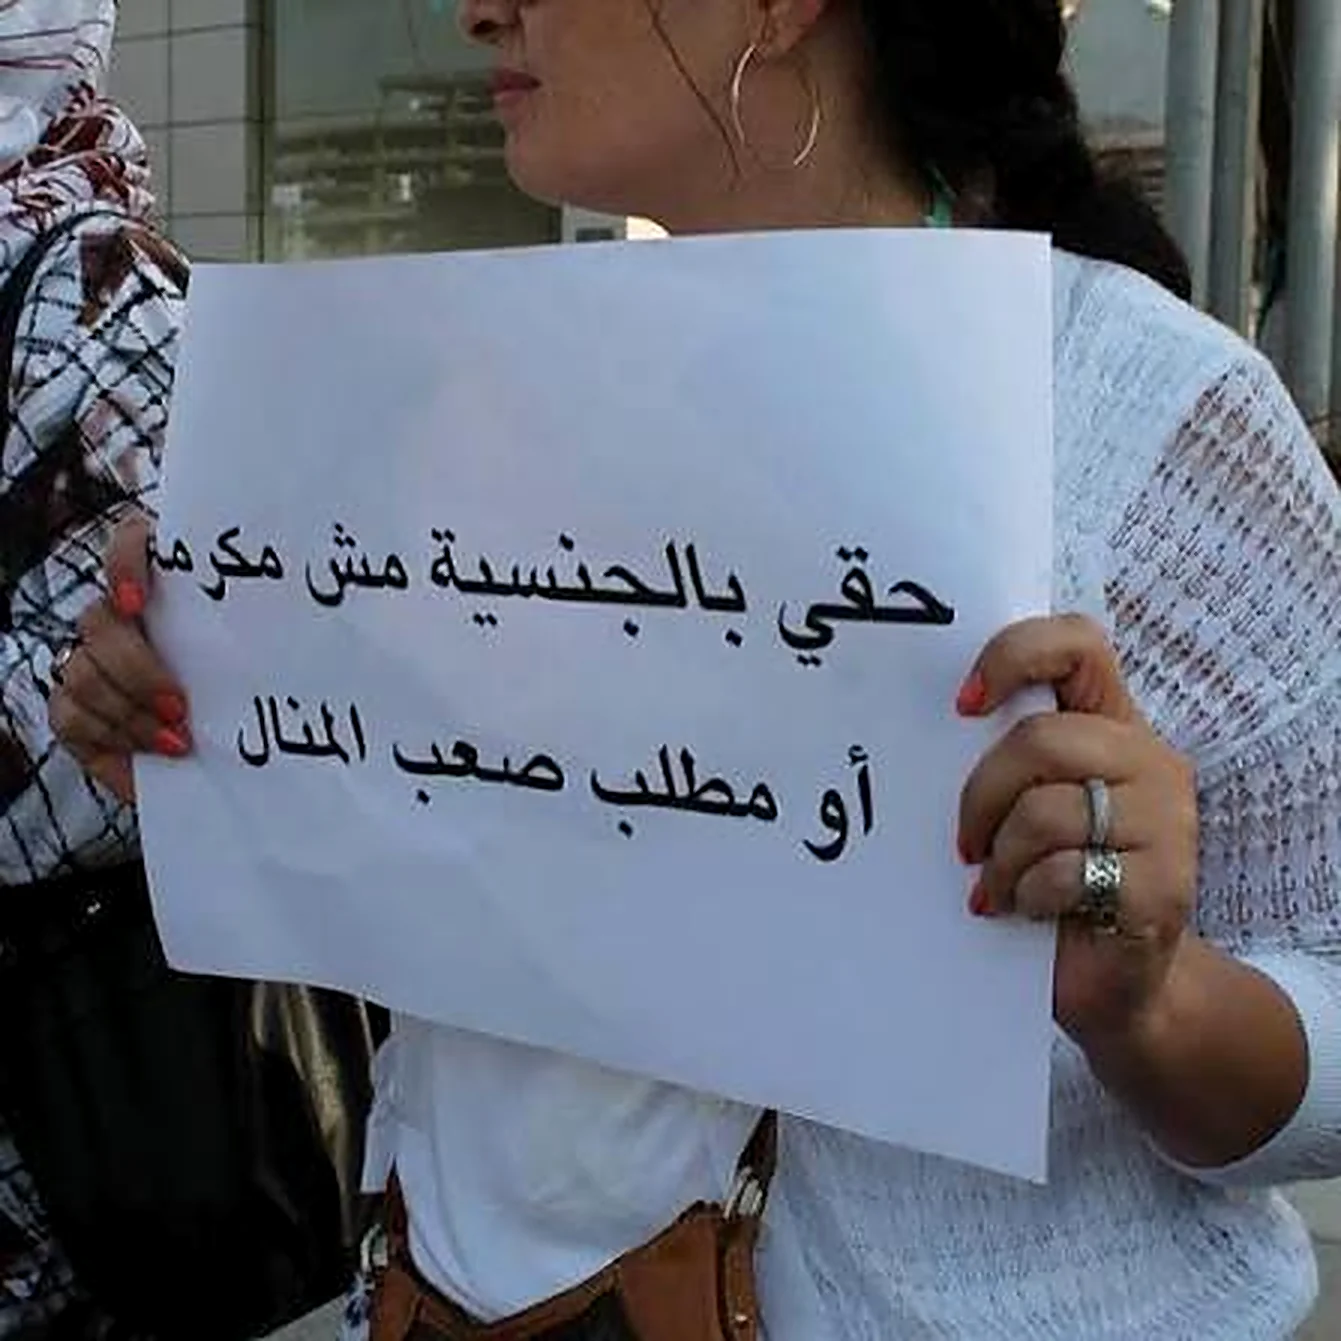 حقي بالجنسية مش مكرمة
أو مطلب صعب المنال